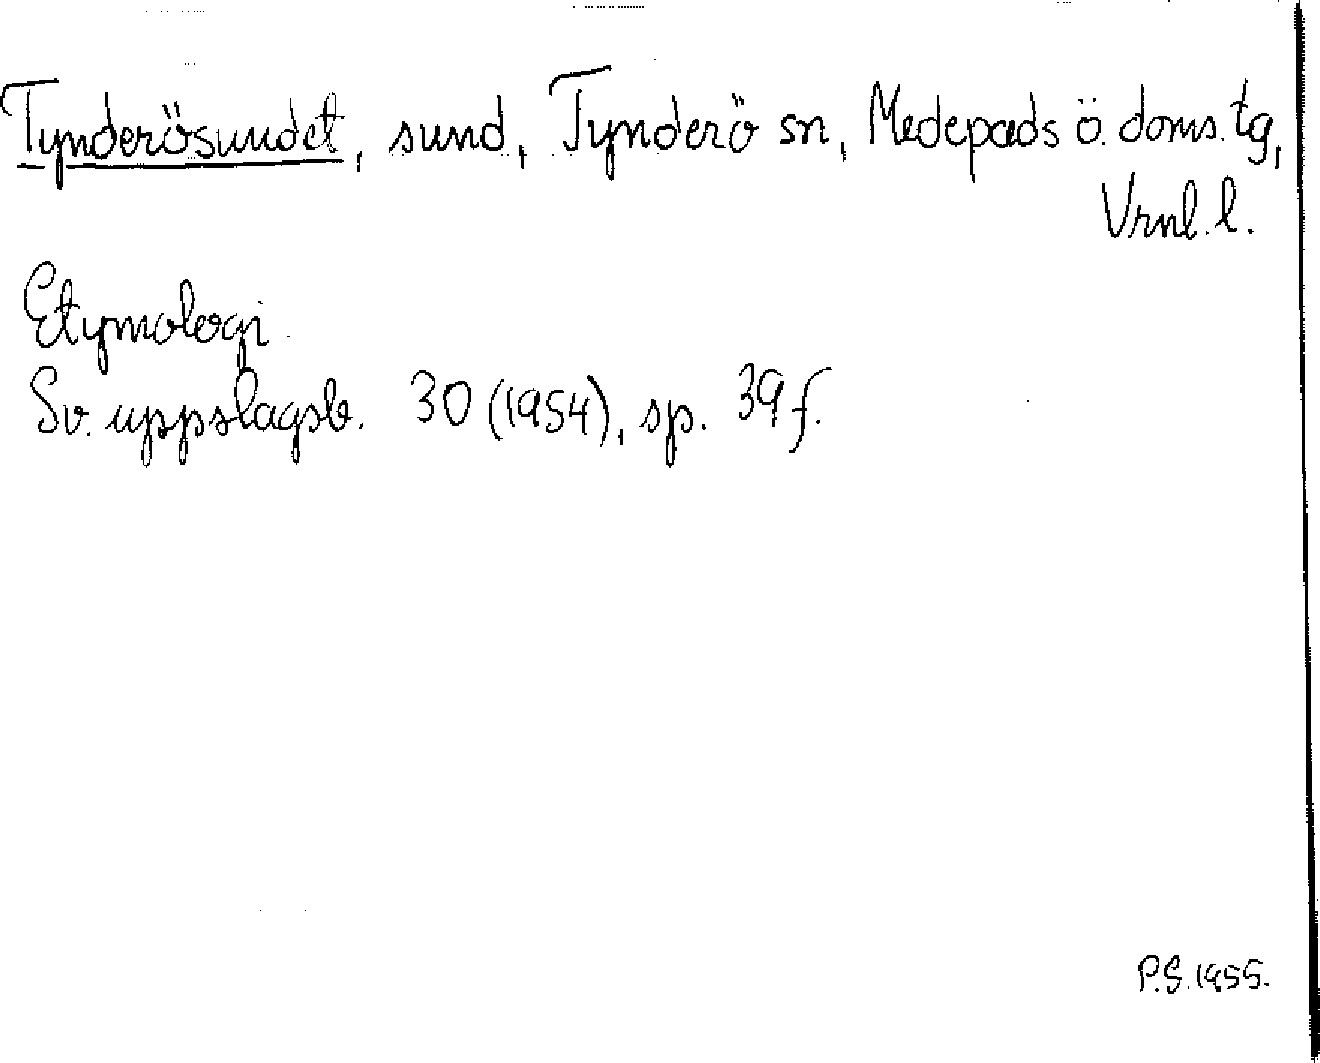 Tynderösundet, sund, Tynderö sn, Medepads ö. doms. tg,
Vrnl. l.
Etymologi.
Sv. uppslagsb. 30 (1954), sp. 39 f.
P.S. 1955.